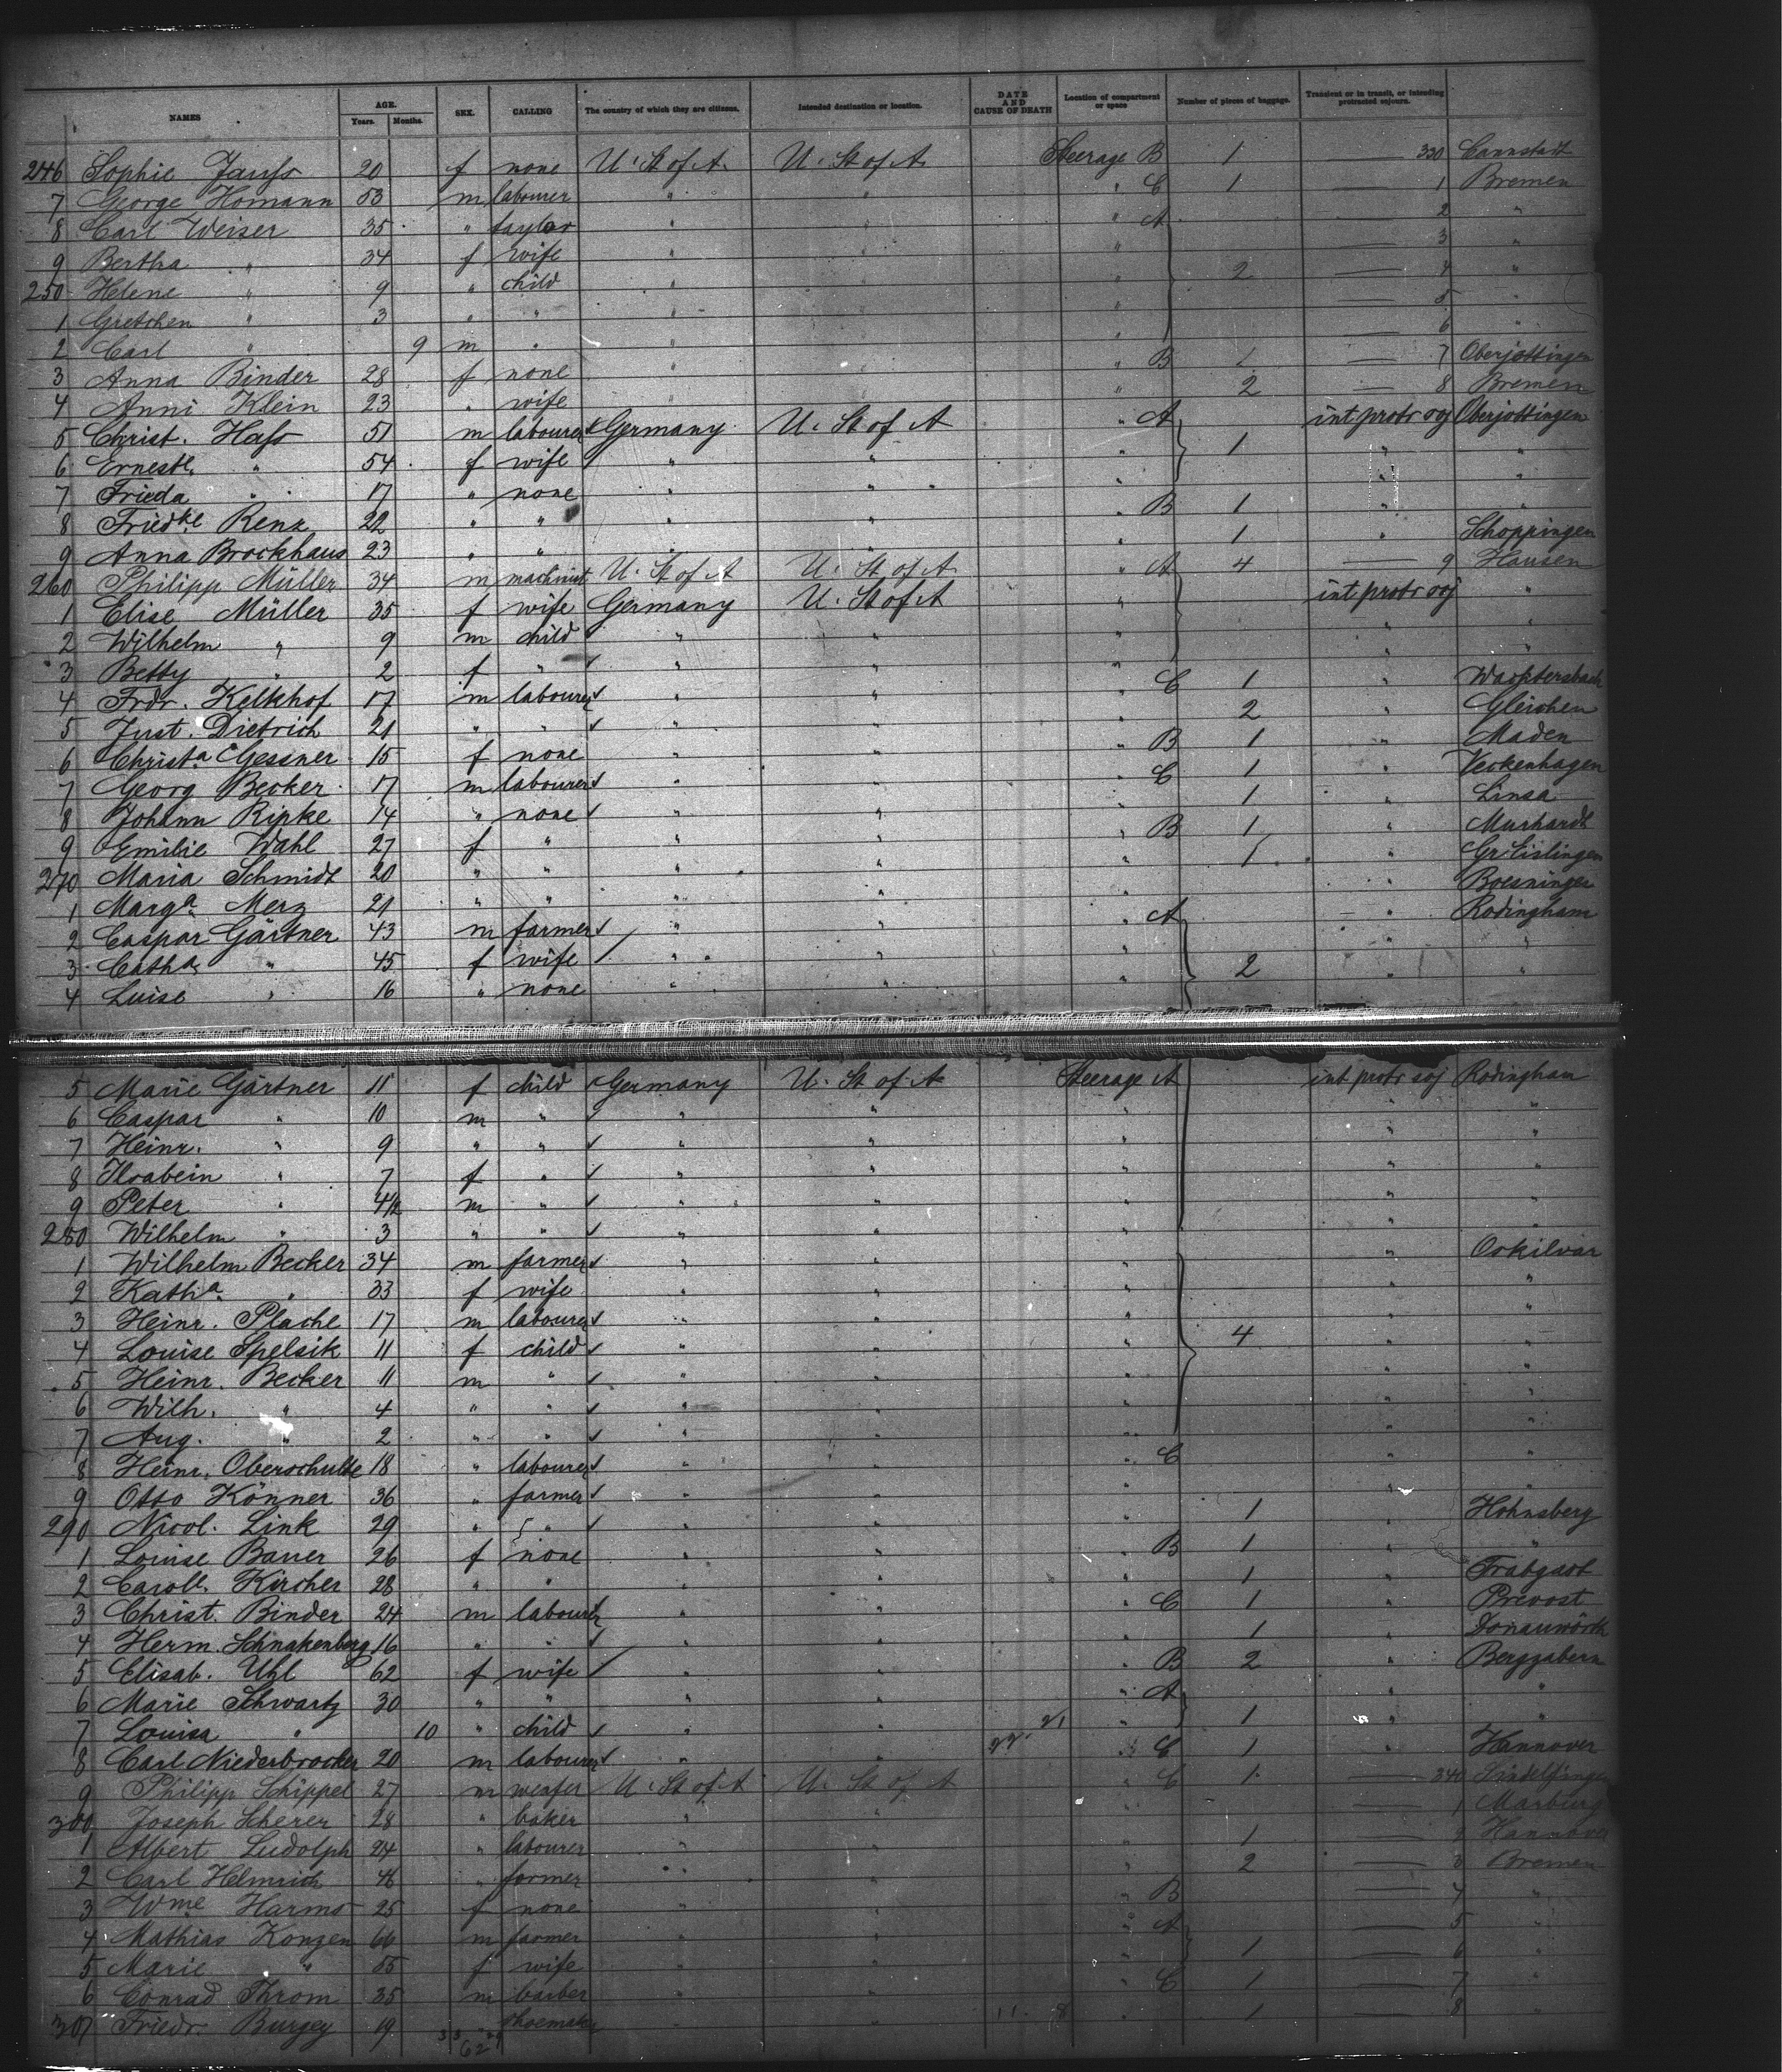 NAMES AGE. Years. Months. SEX. CALLING The country of which they are citizens. Intended destination or location. DATE AND CAUSE OF DEATH Location of compartment or space Number of pieces of baggage. Transient or in transit, or intending protracted sojourn.
246 Sophie 20 f none U. St of A. U. St of A Steerage B 1 — 330 Cannstadt
7 George Homann 53 m labourer " " " C 1 — 1 Bremen
8 Carl Weiser 35 " taylor " " " A — 2 "
9 Bertha " 34 f wife " " " — 3 "
250 Helene " 9 " child " " " 2 — 4 "
1 Gretchen " 3 " " " " " — 5 "
2 Carl " 9 m " " " " — 6 "
3 Anna Binder 28 f none " " " B 1 — 7 Oberjettingen
4 Anni Klein 23 " wife " " " 2 — 8 Bremen
5 Christ. Hass 51 m labourer Germany U. St of A " A int protr soj Oberjettingen
6 Ernestl. " 54 f wife " " " 1 " "
7 Frieda " 17 " none " " " " "
8 Friedke Renz 22 " " " " " B 1 " "
9 Anna Brockhaus 23 " " " " " 1 " Schoppingen
260 Philipp Müller 34 m machinist U. St of A U. St of A " A 4 — 9 Hausen
1 Elise Müller 35 f wife Germany U. St of A " int protr soj "
2 Wilhelm " 9 m child " " " " "
3 Betty " 2 f " " " " " "
4 Frdr. Kelkhof 17 m labourer " " " C 1 " Wachtersbach
5 Just. Dietrich 21 " " " " " 2 " Gleichen
6 Christa Gessner 15 f none " " " B 1 " Maden
7 Georg Becker 17 m labourer " " " C 1 " Veckenhagen
8 Johann Ripke 14 " none " " " 1 " Linsa
9 Emilie Wahl 27 f " " " " B 1 " Murhardt
270 Maria Schmidt 20 " " " " " 1 " Gr. Eislingen
1 Marga. Merz 21 " " " " Boesningen
2 Caspar Gärtner 43 m farmer " " " A " Rodingham
3 Catha. " 45 f wife " " " " "
4 Luise " 16 " none " " " 2 " "
5 Marie Gärtner 11 f child Germany U. St of A Steerage A int protr soj Rodingham
6 Caspar " 10 m " " " " " "
7 Heinr. " 9 " " " " " " "
8 " 7 f " " " " " "
9 Peter " 4 1/2 m " " " " " "
280 Wilhelm " 3 " " " " " " "
1 Wilhelm Becker 34 m farmer " " " " Oskilvar
2 Katha. " 33 f wife " " " " "
3 Heinr. Plache 17 m labourer " " " " "
4 Louise Spelsik 11 f child " " " 4 " "
5 Heinr. Becker 11 m " " " " " "
6 Wilh. " 4 " " " " " " "
7 Aug. " 2 " " " " " " "
8 Heinr. Oberschulte 18 " labourer " " " C " "
9 Otto Könner 36 " farmer " " " " "
290 Nicol. Link 29 " " " " " 1 " Hohnsberg
1 Louise Bauer 26 f none " " " B 1 " "
2 Caroll. Kircher 28 " " " " " 1 " Trabgast
3 Christ. Binder 24 m labourer " " " C 1 " Prevost
4 Herm. Schnakenberg 16 " " " " " 1 " Donauwörth
5 Elisab. Uhl 62 f wife " " " B 2 " Bergzabern
6 Marie Schwartz 30 " " " " " A " "
7 Louisa " 10 " child " " " 1 " "
8 Carl Niederbrocker 20 m labourer " " " C 1 " Hannover
9 Philipp Schippel 27 m weafer U. St of A U. St of A " C 1 — 340 Sindelfingen
300 Joseph Scherer 28 " baker " " " — 1 Marburg
1 Albert Ludolph 24 " labourer " " " 1 — 2 Hannover
2 Carl Helmrich 48 " farmer " " " 2 — 3 Bremen
3 Wme Harms 25 f none " " " B — 4 "
4 Mathias Konzen 66 m farmer " " " A — 5 "
5 Marie " 55 f wife " " " 1 — 6 "
6 Conrad Throm 35 m barber " " " C 1 — 7 "
307 Friedr. Burgey 19 " shoemaker " " " 1 — 8 "
62